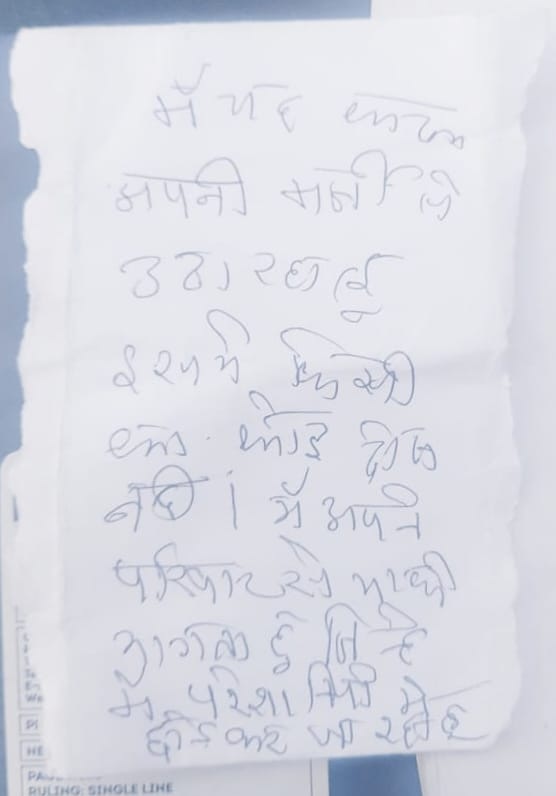 मैं यह कदम
अपनी मर्जी से
उठा रहा हूँ
इसमे किसी
का कोई दोष
नहि । मैं अपने
परिवार से माफी
मागता हुँ जिन्हे
मै परेशानियो मे
छोड कर जा रहा हूँ
RULING: SINGLE LINE